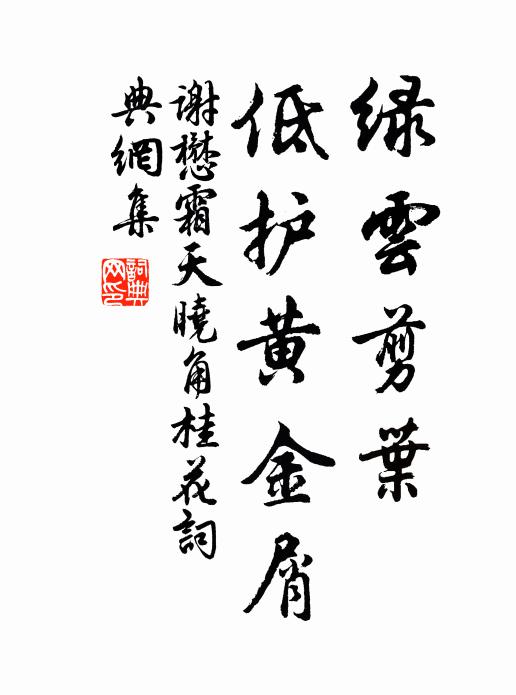 绿雲剪葉
低护黄金屑
谢懋霜天曉角桂花詞
典網集
詞典
网印